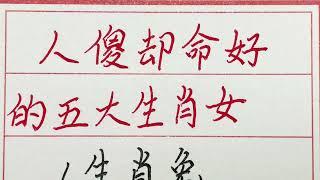 人傻却命好
的五大生肖女
生肖兔